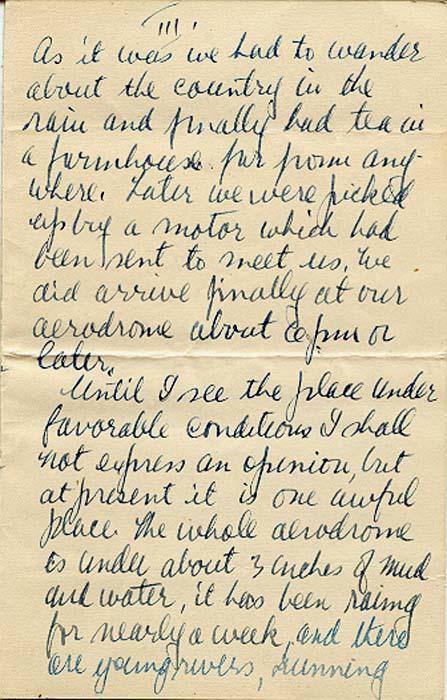 III
As it was we had to wander
about the country in the
rain and finally had tea in
a farmhouse far from any-
where. Later we were picked
up by a motor which had
been sent to meet us. We
did arrive finally at our
aerodrome about pm or
later.
Until I see the place under
favorable conditions I shall
not express an opinion, but
at present it is one awful
place. The whole aerodrome
is under about 3 inches of mud
and water, it has been raing
for nearly a week, and there
are young rivers, running